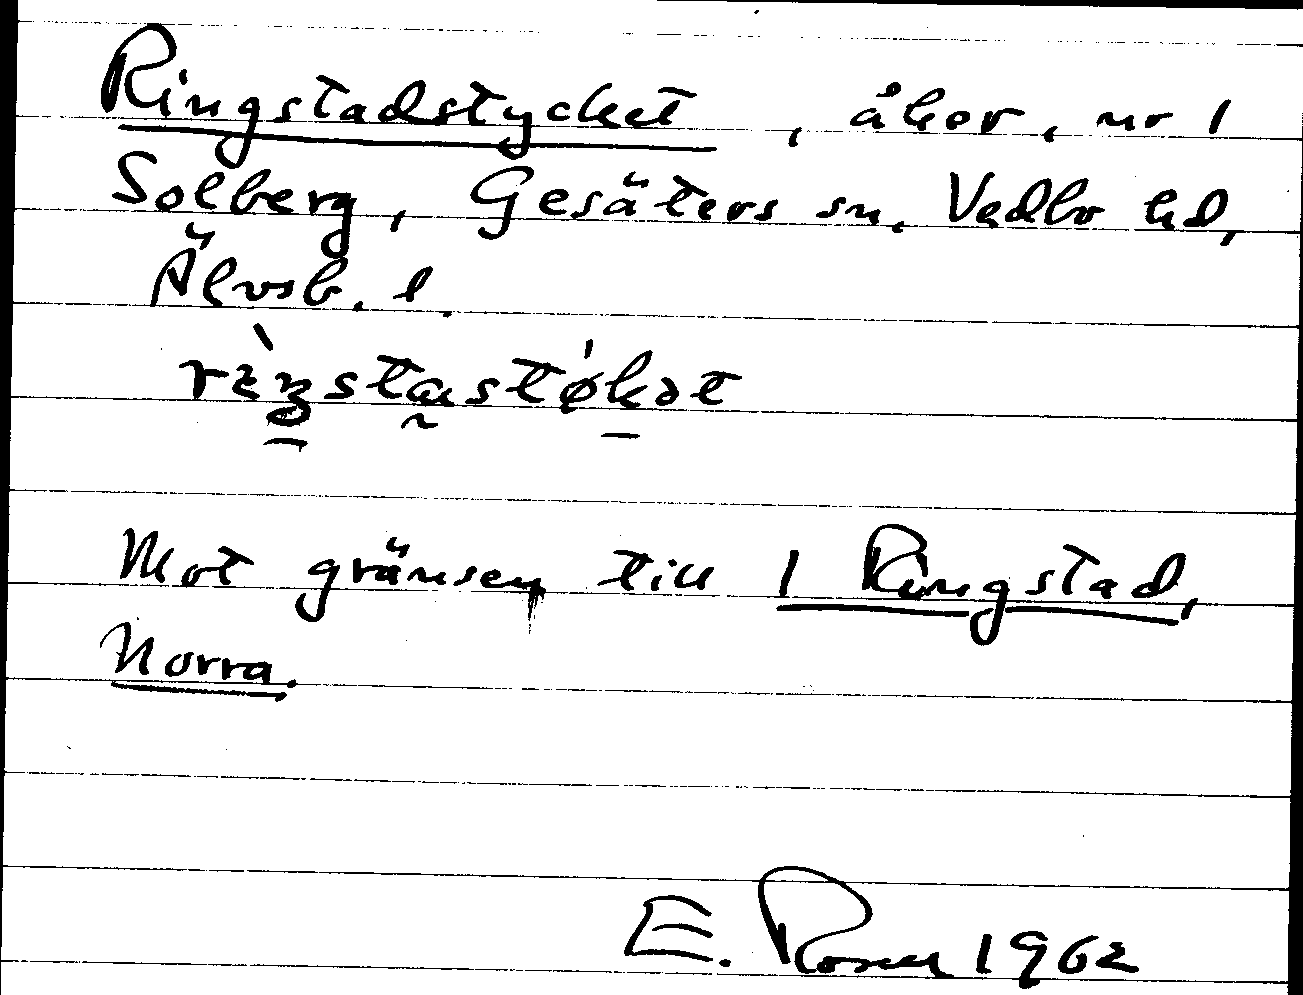 Ringstadstycket, åker, nr 1
Solberg, Gesäters sn, Vedbo hd,
Älvsb. l.
Mot gränsen till 1 Ringstad,
Norra.
E. Rosell 1962